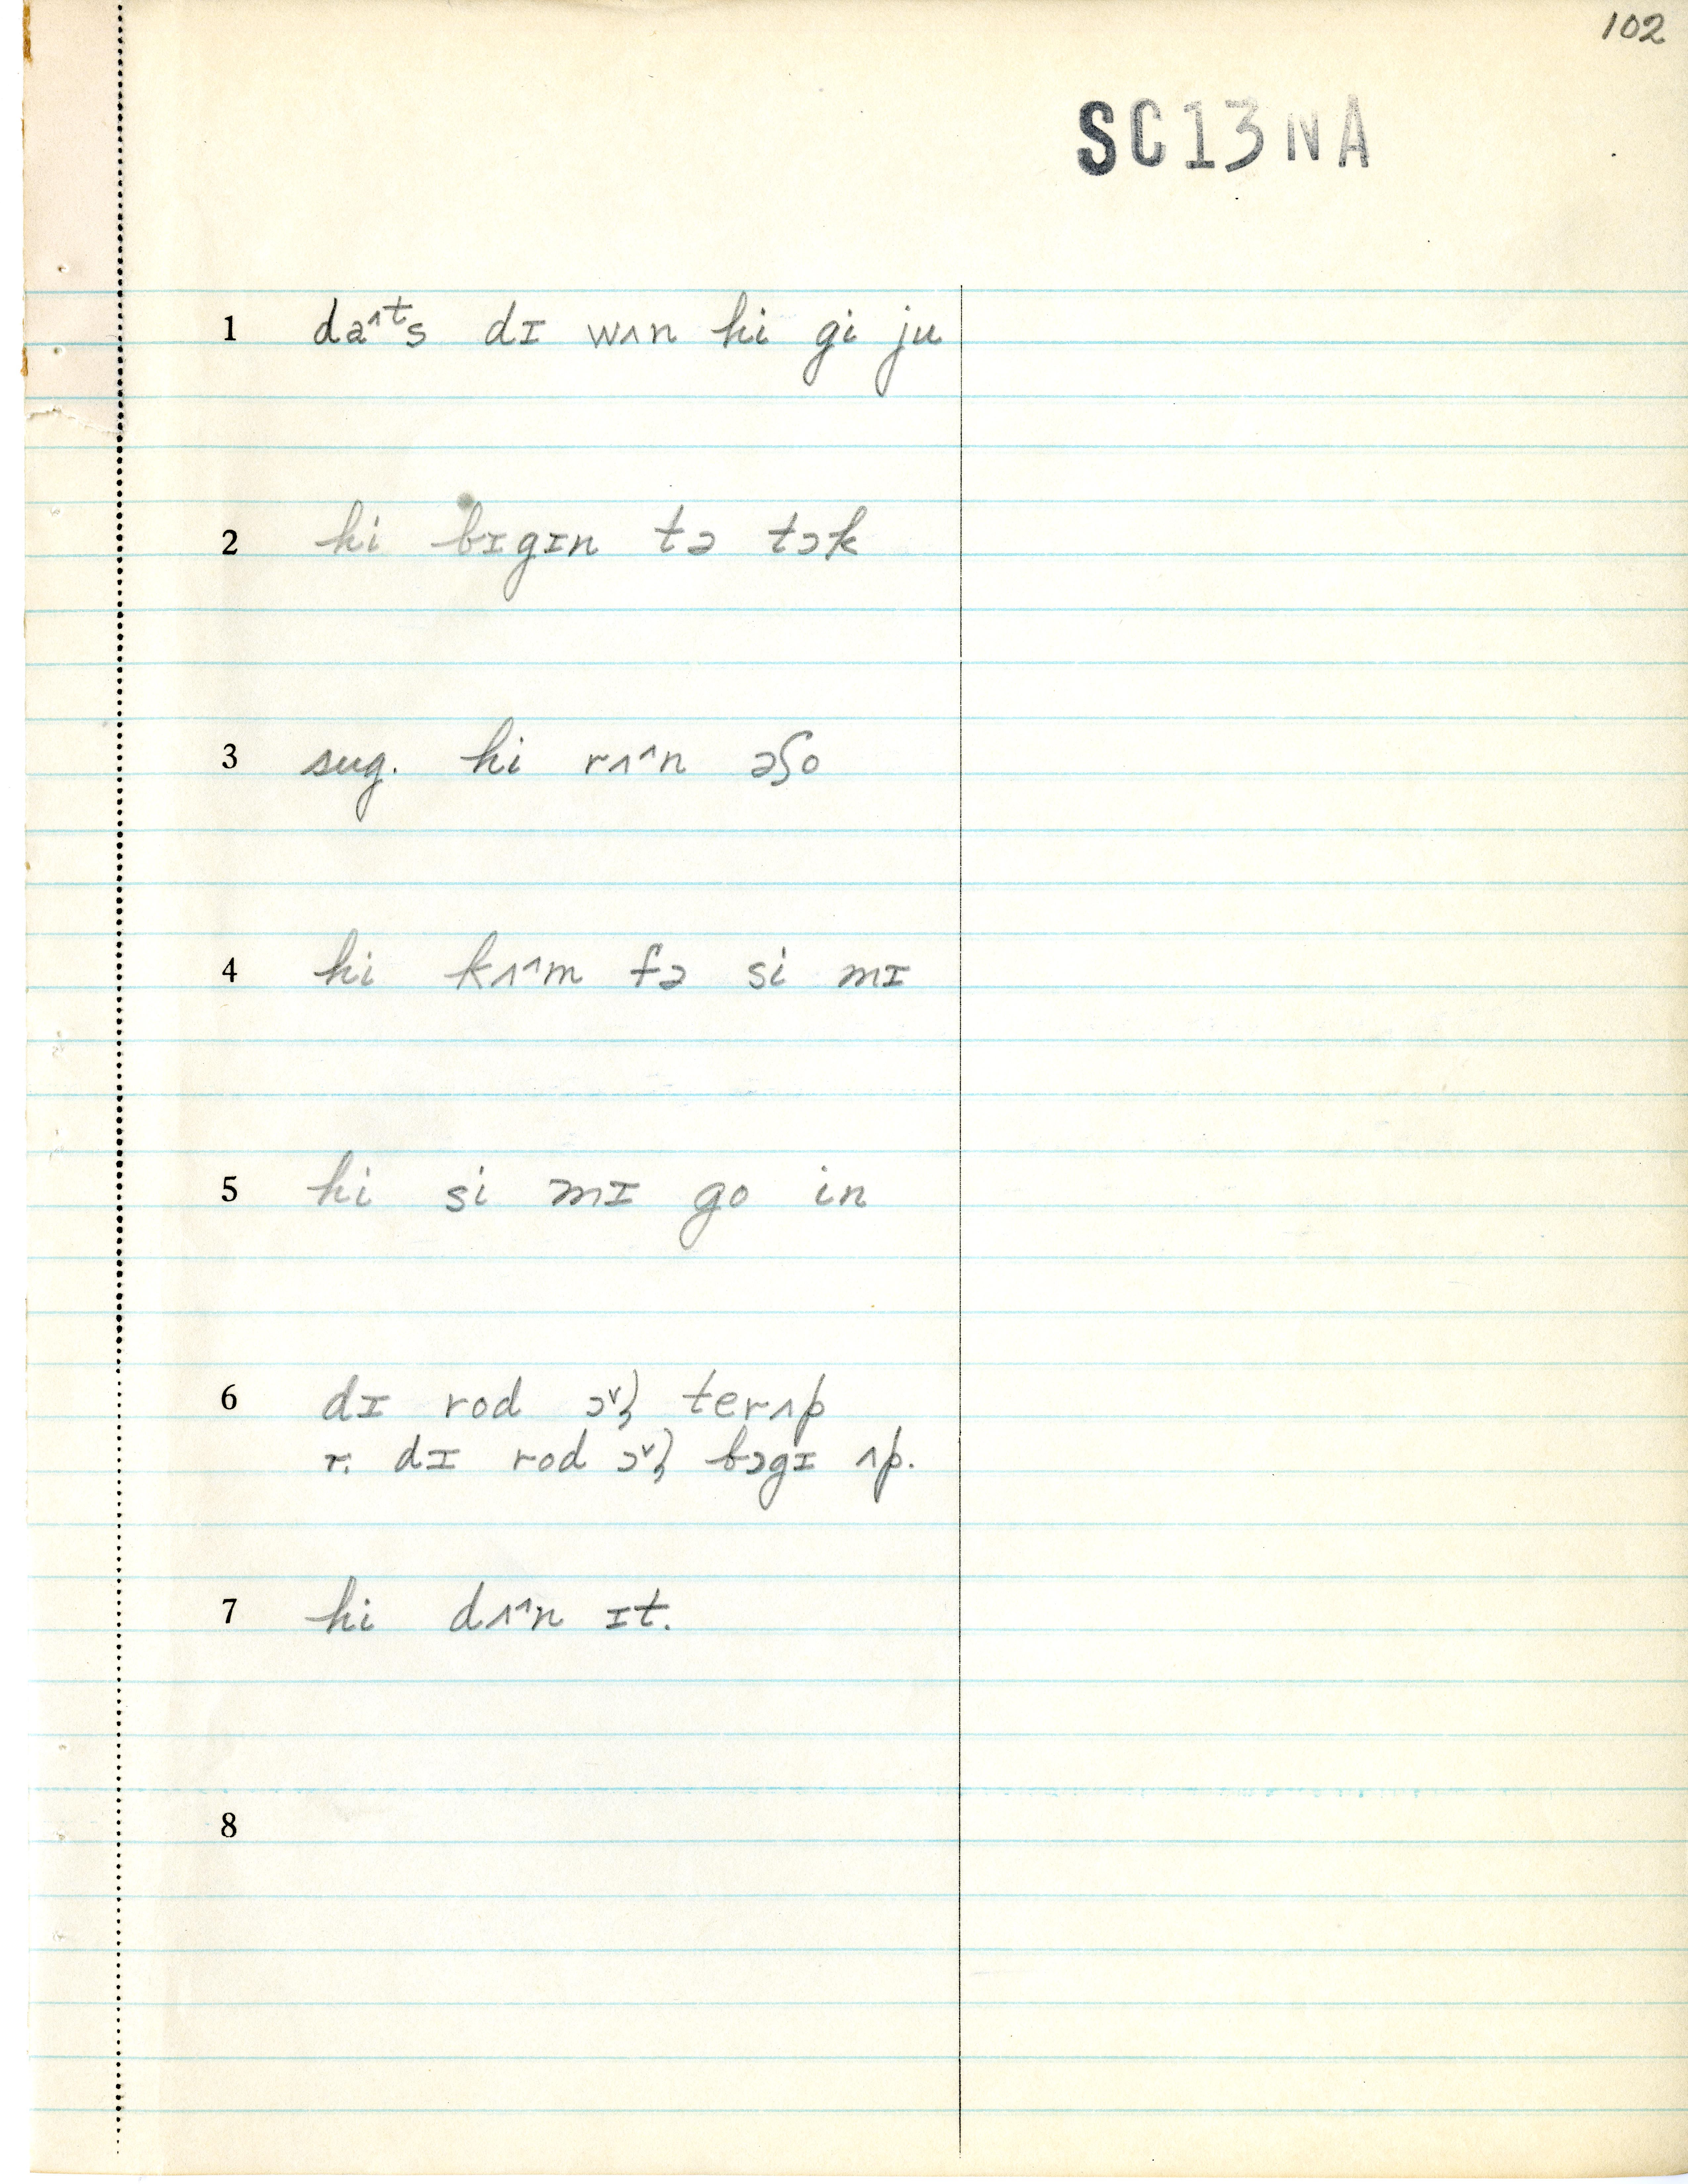 102
SC13NA
1 daᶺᵗs dɪ wʌn hi gi ju
2 hi bɪgɪn tə tɔk
3 sug. hi rʌ^n əʃo
4 hi kʌ^m fə si mɪ
5 hi si mɪ go in
6 dɪ rod ɔᵛl terʌp
r. dɪ rod ɔᵛl bɔgɪ ʌp.
7 hi dʌ^n ɪt.
8